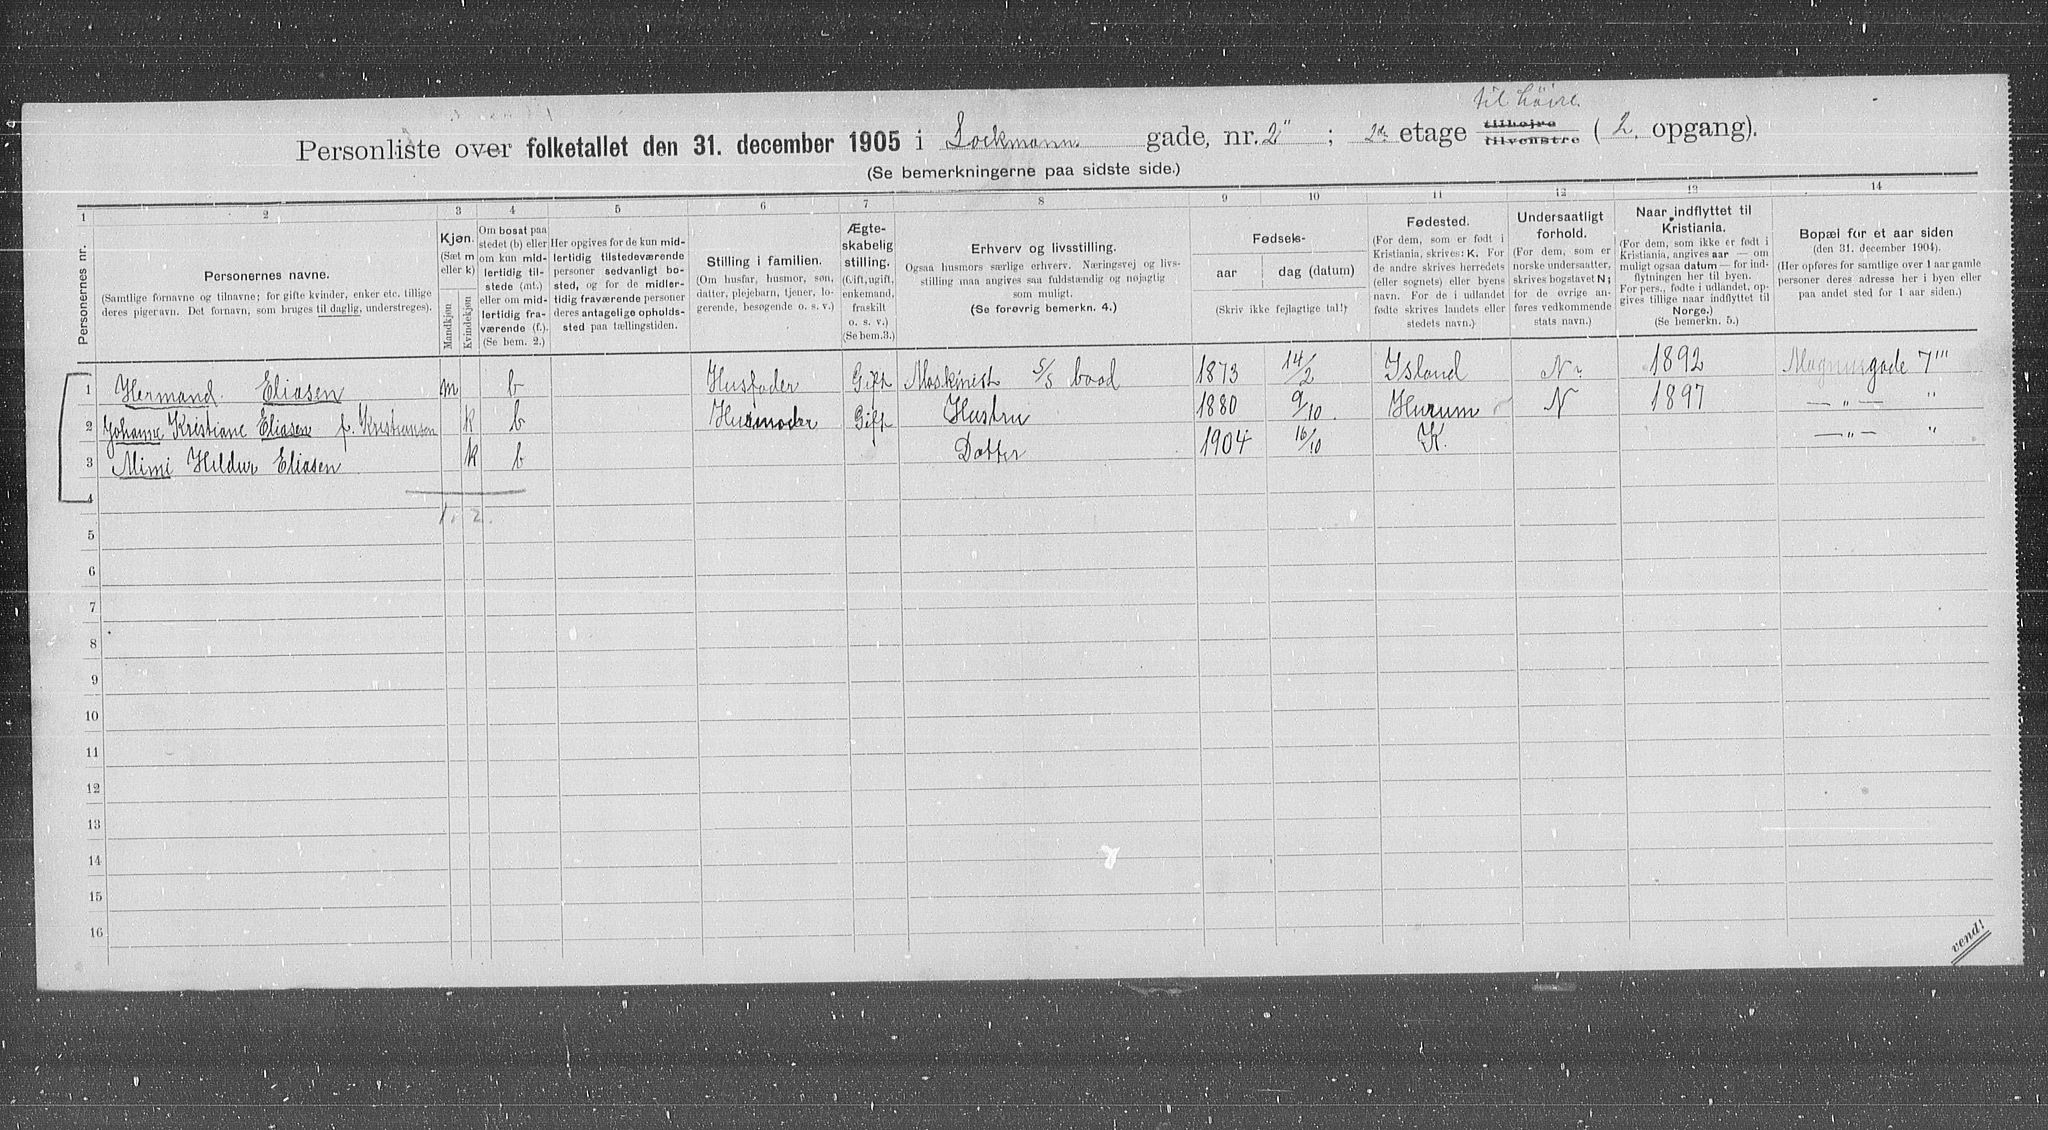 til höire.
Personliste over folketallet den 31. december 1905 i Lockmann gade, nr. 2" ; 2den etage tilhøjre tilvenstre (2. opgang).
(Se bemerkningerne paa sidste side.)
1 2 3 4 5 6 7 8 9 10 11 12 13 14
Personernes nr.
Personernes navne.
(Samtlige fornavne og tilnavne; for gifte kvinder, enker etc. tillige
deres pigenavn. Det fornavn, som bruges til daglig, understreges).
Kjøn.
(Sæt m
eller k)
Mandkjøn
Kvindekjøn
Om bosat paa
stedet (b) eller
om kun mid-
lertidig til-
stede (mt.)
eller om mid-
lertidig fra-
værende (f.).
(Se bem. 2.)
Her opgives for de kun mid-
lertidig tilstedeværende
personer sedvanligt bo-
sted, og for de midler-
tidig fraværende personer
deres antagelige opholds-
sted paa tællingstiden.
Stilling i familien.
(Om husfar, husmor, søn,
datter, plejebarn, tjener, lo-
gerende, besøgende o. s. v.)
Ægte-
skabelig
stilling.
(Gift, ugift,
enkemand,
fraskilt
o. s. v.)
(Se bem. 3.)
Erhverv og livsstilling.
Ogsaa husmors særlige erhverv. Næringsvej og livs-
stilling maa angives saa fuldstændig og nøjagtig
som muligt.
(Se forøvrig bemerkn. 4.)
Fødsels-
aar
dag (datum)
(Skriv ikke fejlagtige tal!)
Fødested.
(For dem, som er født i
Kristiania, skrives: K. For
de andre skrives herredets
(eller sognets) eller byens
navn. For de i udlandet
fødte skrives landets eller
stedets navn.)
Undersaatligt
forhold.
(For dem, som er
norske undersaatter,
skrives bogstavet N;
for de øvrige an-
føres vedkommende
stats navn.)
Naar indflyttet til
Kristiania.
(For dem, som ikke er født i
Kristiania, angives aar — om
muligt ogsaa datum — for ind-
flytningen her til byen.
For pers., fødte i udlandet, op-
gives tillige naar indflyttet til
Norge.)
(Se bemerkn. 5.)
Bopæl for et aar siden
(den 31. december 1904).
(Her opføres for samtlige over 1 aar gamle
personer deres adresse her i byen eller
paa andet sted for 1 aar siden.)
1 Hermand Eliasen m b Husfader Gift Maskinist S/S baad 1873 14/2 Island N 1892 Magnusgade 7'"
2 Johanne Kristiane Eliasen f. Kristiansen k b Husmoder Gift Hustru 1880 9/10 Hurum N 1897 — " — "
3 Mimi Hildur Eliasen k b Datter 1904 16/10 K. — " — "
4
1. 2.
5
6
7
8
9
10
11
12
13
14
15
16
vend!